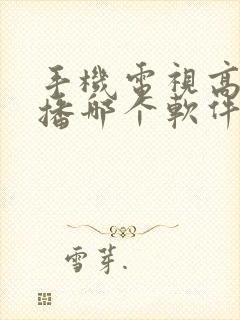 手機電視高
播哪个軟件
雪芽.